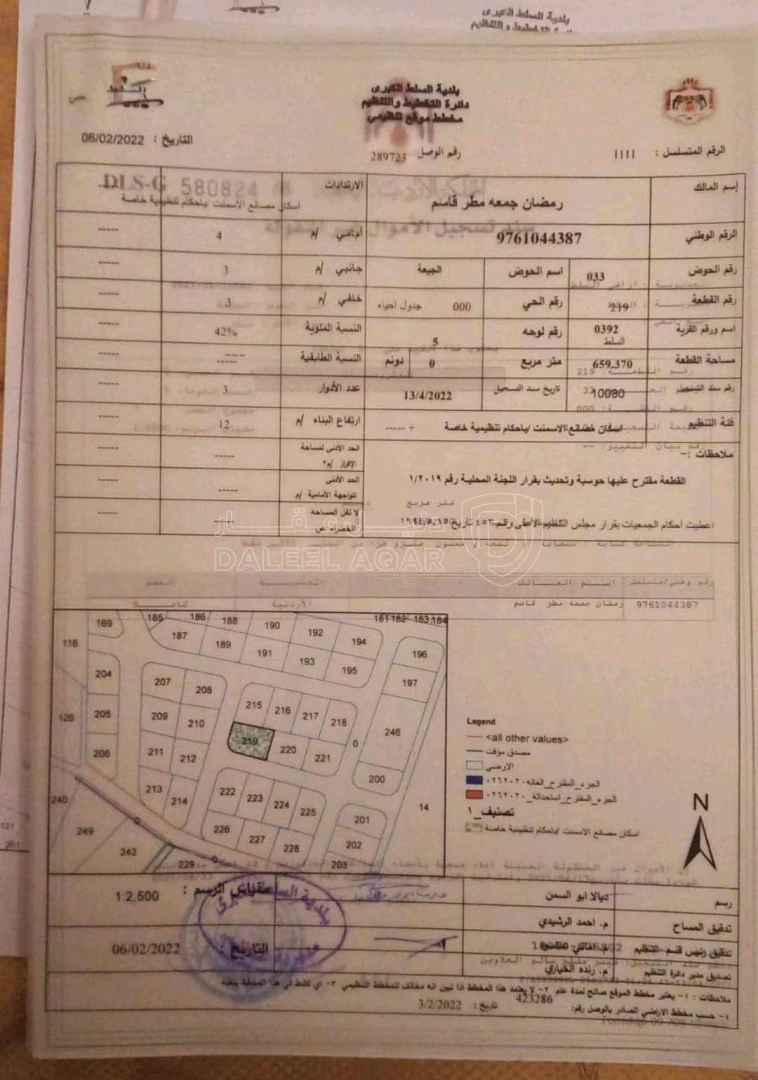 بلدية السلط الكبرى
دائرة التخطيط والتنظيم
بلدية السلط الكبرى
دائرة التخطيط والتنظيم
مخطط موقع تنظيمي
السلط
التاريخ : 06/02/2022
الرقم المتسلسل : 1111
رقم الوصل 289723
إسم المالك رمضان جمعه مطر قاسم
الارتدادات
DLS-G 580824
اسكان مصانع الاسمنت /باحكام تنظيمية خاصة
الرقم الوطني 9761044387
امامي /م 4 -----
رقم الحوض 033 اسم الحوض الجيعة
جانبي /م 3 -----
رقم القطعة 219 رقم الحي 000 جدول احياء
خلفي /م 3 -----
اسم ورقم القرية 0392 السلط رقم لوحه 5
النسبة المئوية 42% -----
مساحة القطعة 659.370 متر مربع 0 دونم
النسبة الطابقية ---- -----
رقم سند التسجيل 10080 تاريخ سند التسجيل 13/4/2022
عدد الأدوار 3 -----
فئة التنظيم اسكان مصانع الاسمنت /باحكام تنظيمية خاصة + -----
ارتفاع البناء /م 12 -----
ملاحظات :-
الحد الأدنى لمساحة الإفراز /م٢ -----
القطعة مقترح عليها حوسبة وتحديث بقرار اللجنة المحلية رقم ١/٢٠١٩
الحد الأدنى للواجهة الأمامية /م -----
لا تقل المساحه الخضراء عن
دليل عقار
DALEEL AQAR
رقم وطني/متسلسل اسم المالك الجنسية الحصص
9761044387 رمضان جمعه مطر قاسم الأردنية كاملا
185 186 188 190 192 194 181 182 183 184
169 187 189 191 193 195 196
116 204 207 208 197
126 205 209 210 215 216 217 218 246
206 211 212 219 220 221 0 200
213 214 222 223 224 225 201 14
240 249 242 0 226 227 228 202
229 203
Legend
<all other values>
مصدق موقت
الأرضي
الجزء_المقترح_الغائه_٠٢٦٢٠٢٠
الجزء_المقترح_استحداثة_٠٢٦٢٠٢٠
تصنيف_١
اسكان مصانع الاسمنت /باحكام تنظيمية خاصة
N
رسم ديالا ابو السمن
مقياس الرسم : 1:2,500
تدقيق المساح م. احمد الرشيدي
تدقيق رئيس قسم التنظيم
التاريخ : 06/02/2022
تصديق مدير دائرة التنظيم م. رنده الخياري
ملاحظات : ١- يعتبر مخطط الموقع صالح لمدة عام ٢- لا يعتمد هذا المخطط اذا تبين انه مخالف للمخطط التنظيمي ٣- اي كشط في هذا المخطط يبطله
٤- حسب مخطط الاراضي الصادر بالوصل رقم: 423286 تاريخ : 3/2/2022